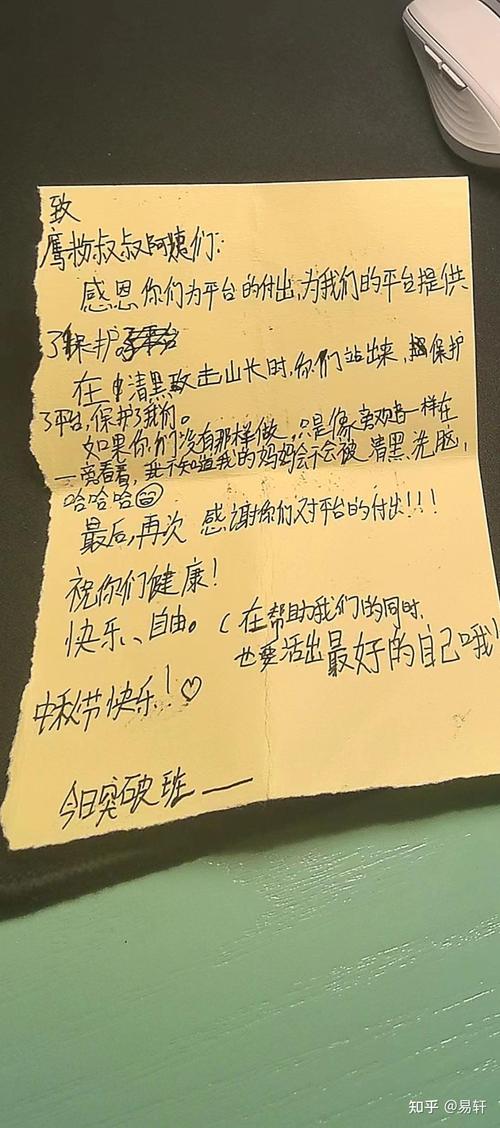 致
鹰妆叔叔阿姨们：
感恩你们为平台的付出，为我们的平台提供
了保护
在清黑攻击山长时，你们站出来，保护
了平台，保护了我们。
如果你们没有那样做，只是像旁观者一样在
一旁看着，我不知道我的妈妈会不会被清黑洗脑，
哈哈哈
最后，再次 感谢你们对平台的付出!!!
祝你们健康!
快乐、自由。(在帮助我们的同时
也要活出最好的自己哦!
中秋节快乐!♡
今日突破班 ——
知乎 @易轩